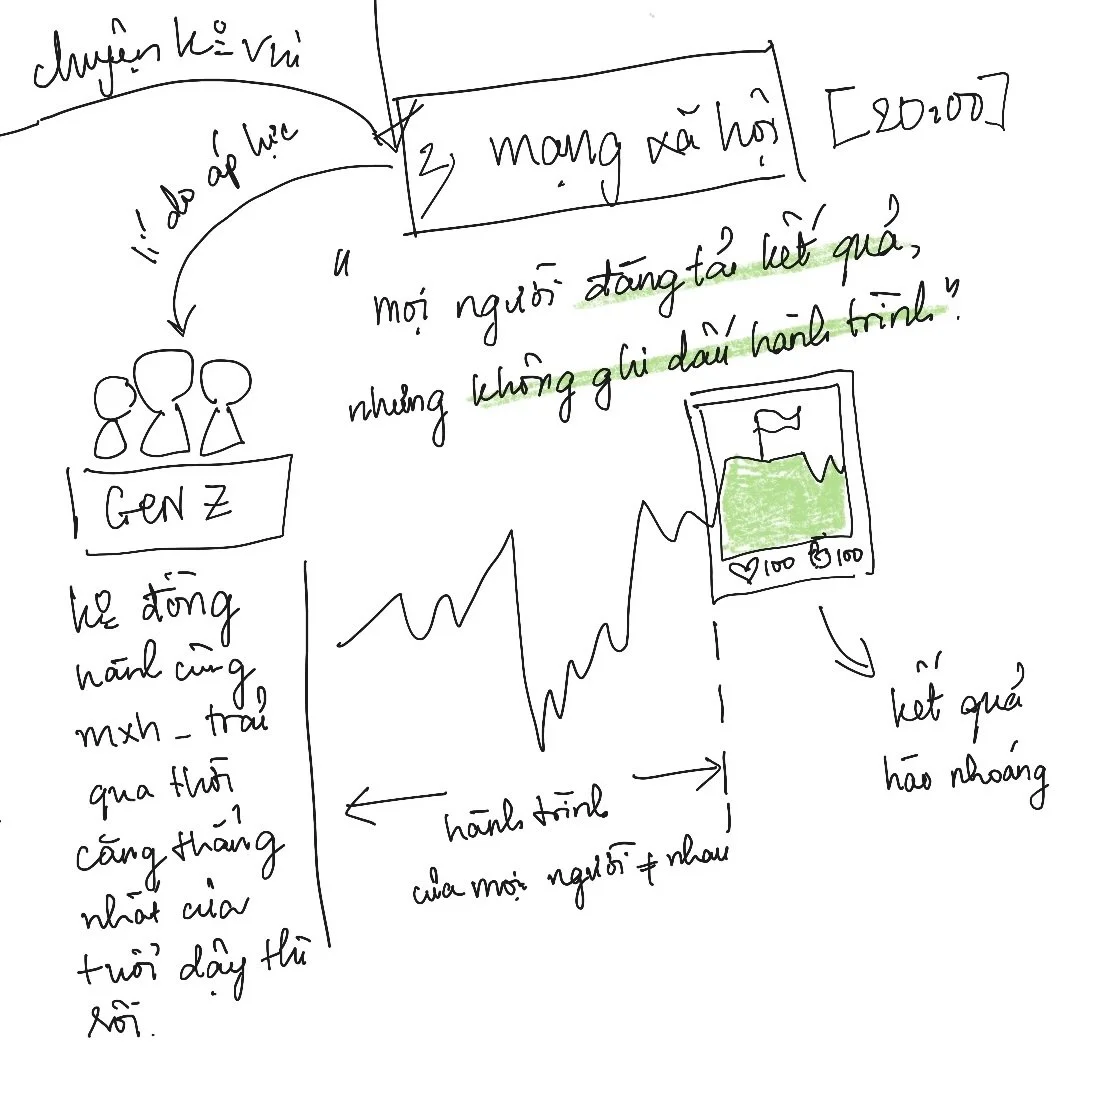 chuyện kể vui
lí do áp lực
3, mạng xã hội
[20:00]
"
mọi người đăng tải kết quả,
nhưng không ghi dấu hành trình".
GEN Z
kẻ đồng
hành cùng
mxh _ trải
qua thời
căng thẳng
nhất của
tuổi dậy thì
rồi.
100 100
hành trình
của mọi người ≠ nhau
kết quả
hào nhoáng